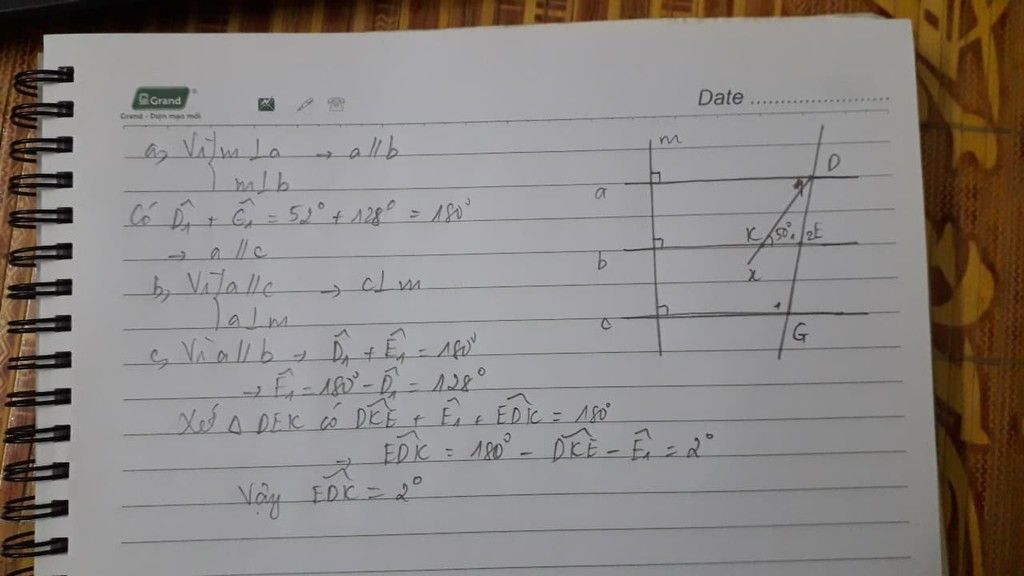 Grand
Grand - Diện mạo mới
Date
a, Vì m⊥a → a//b
m⊥b
Có D̂₁ + Ĝ₁ = 52° + 128° = 180°
→ a//c
b, Vì a//c → c⊥m
a⊥m
c, Vì a//b → D̂₁ + Ê₁ = 180°
→ Ê₁ = 180° - D̂₁ = 128°
Xét Δ DEK có DK̂E + Ê₁ + ED̂K = 180°
→ ED̂K = 180° - DK̂E - Ê₁ = 2°
Vậy ED̂K = 2°
m
D
a
K 50° 1 2 E
b
x
c
G